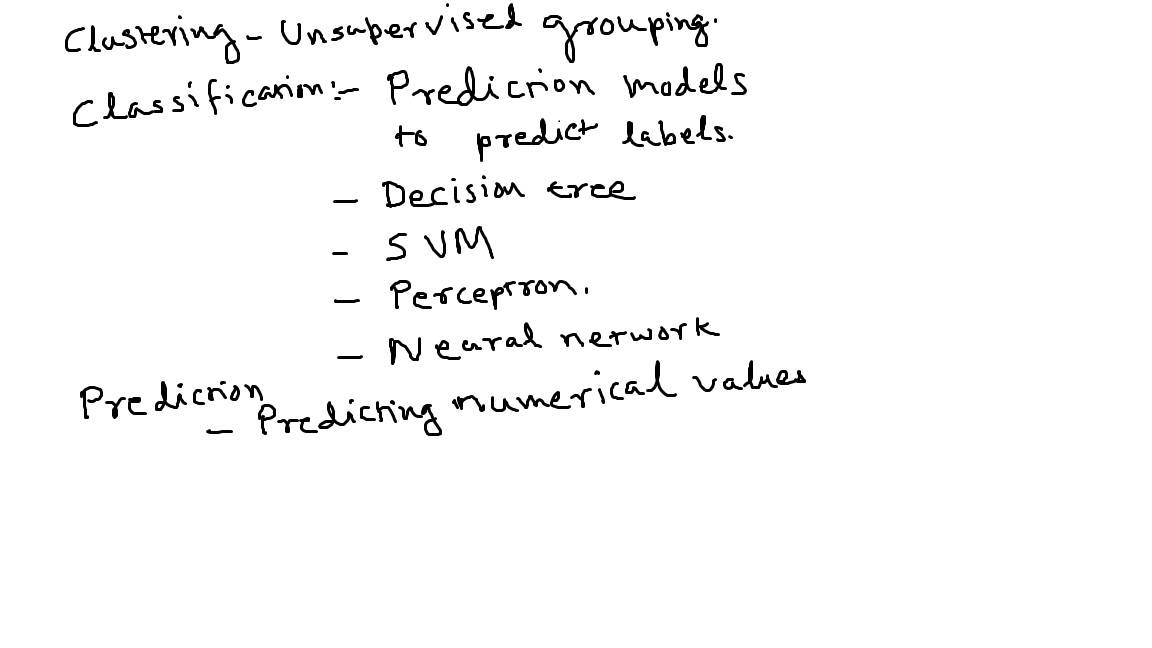 Clustering - Unsupervised grouping.
Classification :- Prediction models
to predict labels.
- Decision tree
- SVM
- Perceptron.
- Neural network
Prediction
- Predicting numerical values